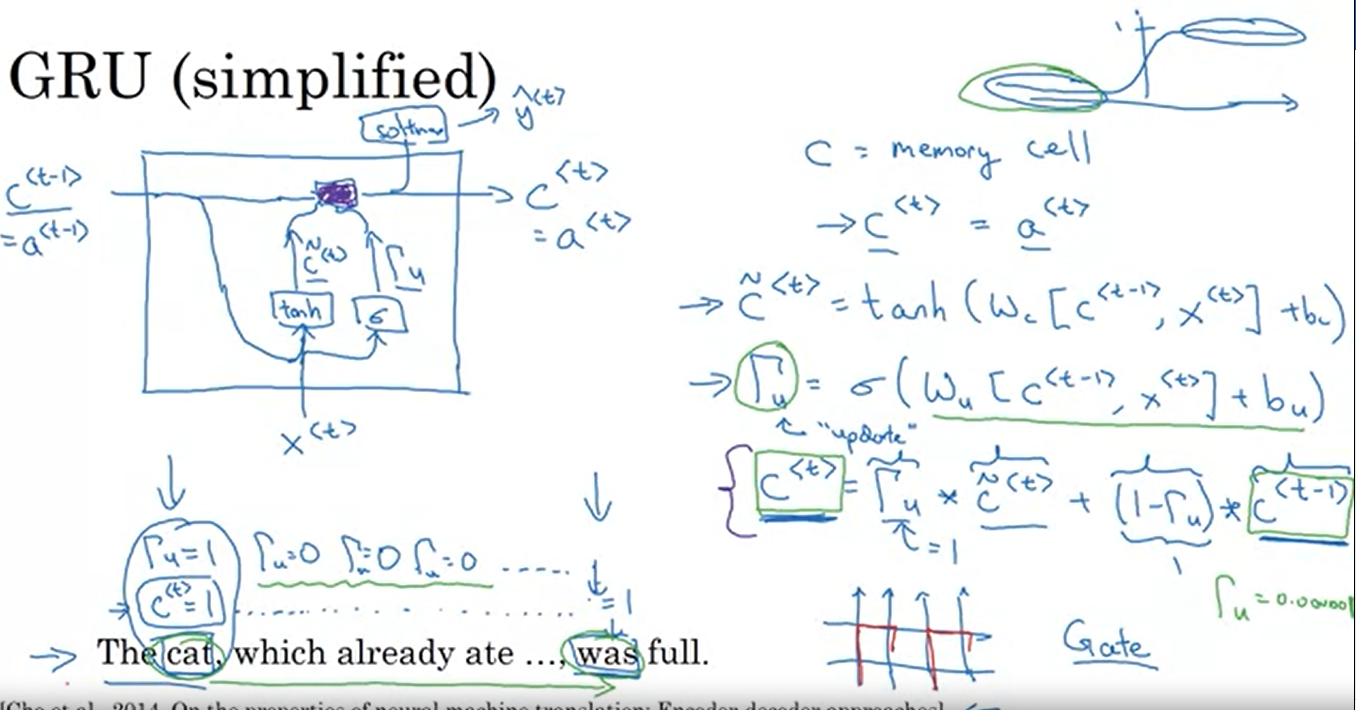 GRU (simplified)
softmax → ŷ<t>
c<t-1>
= a<t-1>
c<t>
= a<t>
c̃<t>
Γu
tanh
σ
x<t>
C = memory cell
→ c<t> = a<t>
→ c̃<t> = tanh (Wc [c<t-1>, x<t>] + bc)
→ Γu = σ (Wu [c<t-1>, x<t>] + bu)
"update"
c<t> = Γu * c̃<t> + (1-Γu) * c<t-1>
= 1
1
Γu = 1 Γu=0 Γu=0 Γu=0 .....
c<t> = 1 ..........
= 1
Γu = 0.000001
Gate
→ The cat, which already ate …, was full.
[Cho et al., 2014. On the properties of neural machine translation: Encoder-decoder approaches]